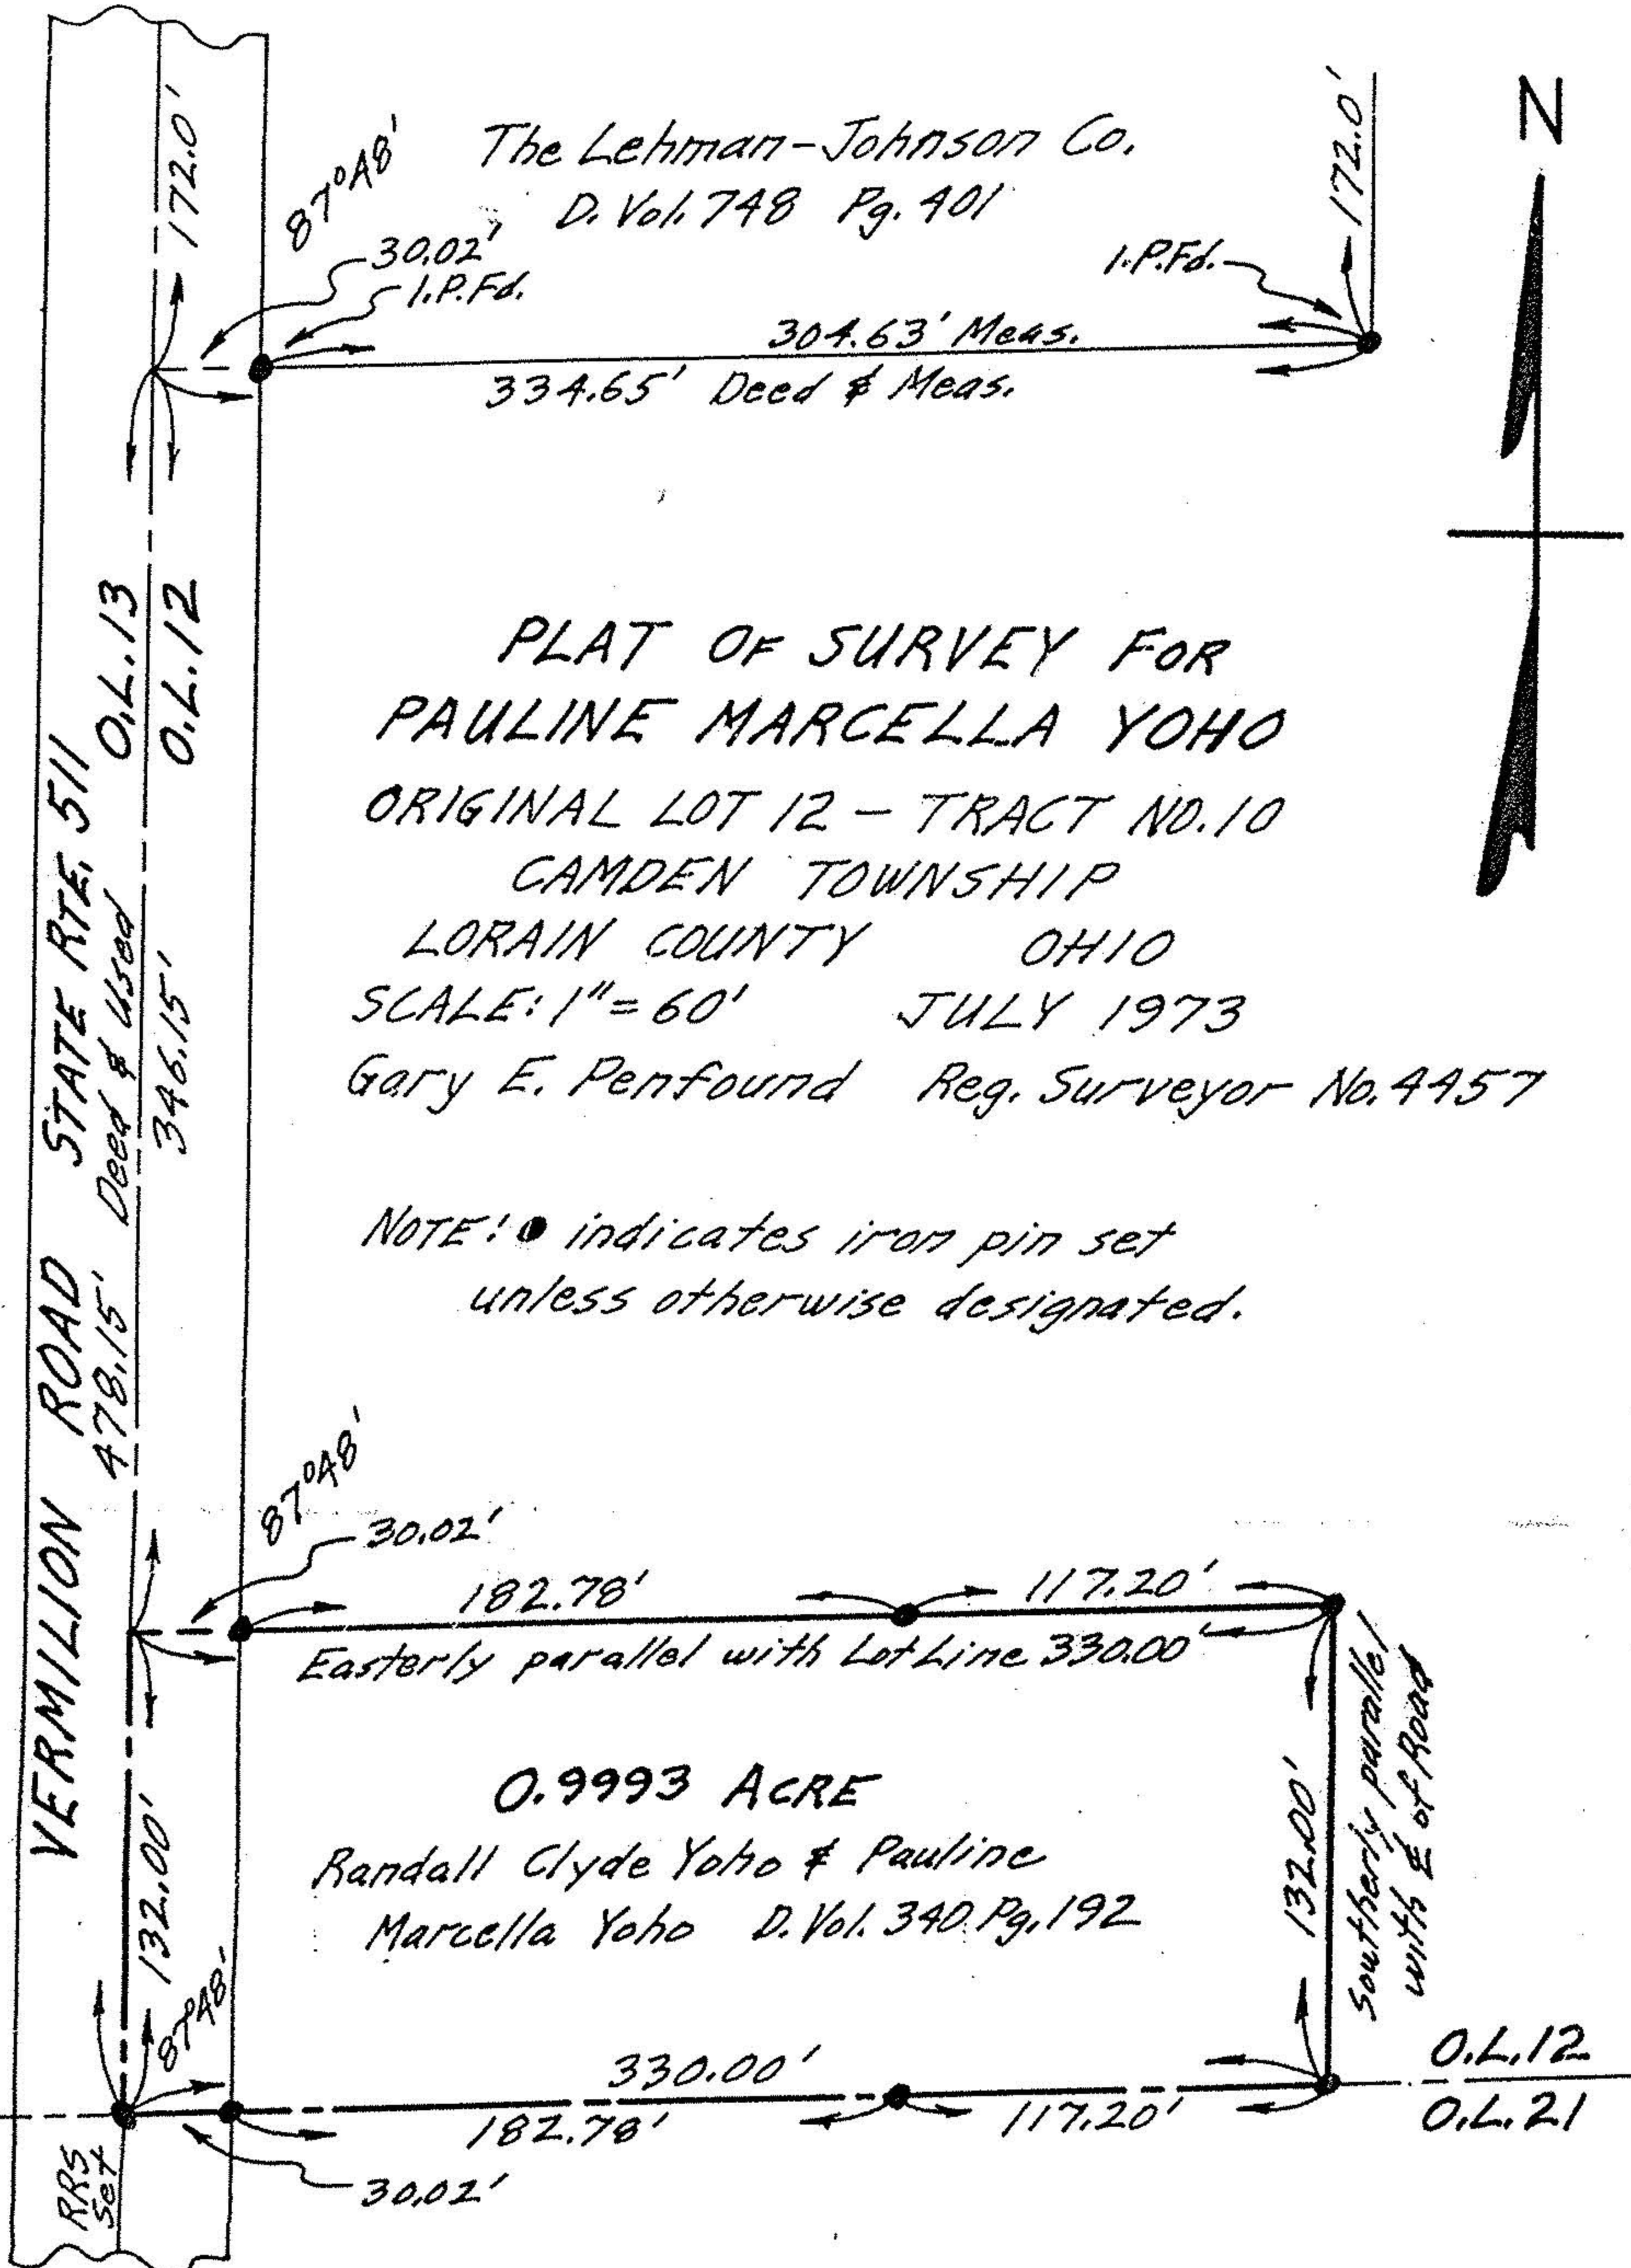 N
172.0'
172.0'
The Lehman-Johnson Co.
D. Vol. 748 Pg. 401
87°48'
30.02'
I.P.Fd.
I.P.Fd.
304.63' Meas.
334.65' Deed & Meas.
VERMILION ROAD STATE RTE. 511
O.L.13
O.L.12
478.15' Deed & Used
346.15'
PLAT OF SURVEY FOR
PAULINE MARCELLA YOHO
ORIGINAL LOT 12 - TRACT NO. 10
CAMDEN TOWNSHIP
LORAIN COUNTY OHIO
SCALE: 1"= 60' JULY 1973
Gary E. Penfound Reg. Surveyor No. 4457
NOTE: ● indicates iron pin set
unless otherwise designated.
87°48'
30.02'
182.78' 117.20'
Easterly parallel with Lot Line 330.00'
0.9993 ACRE
Randall Clyde Yoho & Pauline
Marcella Yoho D. Vol. 340 Pg. 192
132.00'
87°48'
132.00'
Southerly parallel
with ℄ of Road
330.00'
182.78' 117.20'
30.02'
O.L.12
O.L.21
RRS
Set